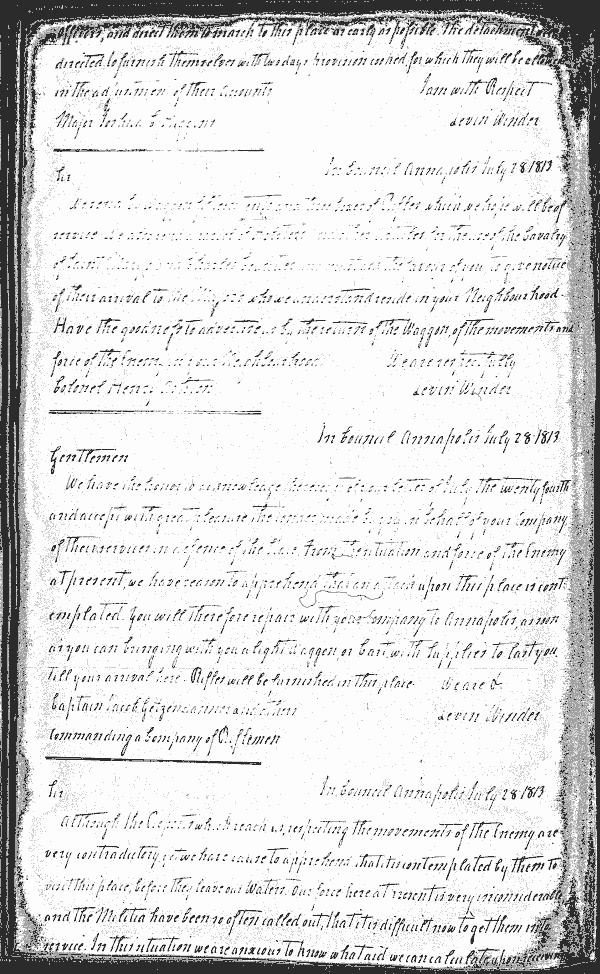 officers, and direct them to march to this place as early as possible. The detachment
directed to furnish themselves with two days provision cooked, for which they will be allowed
in the adjustment of their accounts I am with Respect
Major Joshua Levin Winder
In Council Annapolis July 28 1813
Sir
We send by Waggon three boxes of Rifles which we hope will be of
service for the use of the Cavalry
of Saint Mary's and Charles Counties the favor of you to give notice
of their arrival to the who we understand reside in your Neighbourhood
Have the goodness to advise us by the return of the Waggon of the movements and
force of the Enemy in your Neighbourhood We are respectfully
Colonel Henry Levin Winder
In Council Annapolis July 28 1813
Gentlemen
We have the honor to acknowledge the receipt of your letter of July the twenty fourth
and accept with great pleasure the tender made by you in behalf of your Company
of their services in defence of the State. From the situation and force of the Enemy
at present, we have reason to apprehend that an attack upon this place is cont
emplated. You will therefore repair with your Company to Annapolis as soon
as you can bringing with you a light Waggon, or Cart, with supplies to last you
till your arrival here. Rifles will be furnished in this place. We are &
Captain Jacob Getzendanner and others Levin Winder
Commanding a Company of Riflemen
In Council Annapolis July 28 1813
Sir
Although the Reports which reach us, respecting the movements of the Enemy are
very contradictory, yet we have cause to apprehend that it is contemplated by them to
visit this place, before they leave our Waters. Our force here at present is very inconsiderable
and the Militia have been so often called out, that it is difficult now to get them into
service. In this situation we are anxious to know what aid we can calculate upon